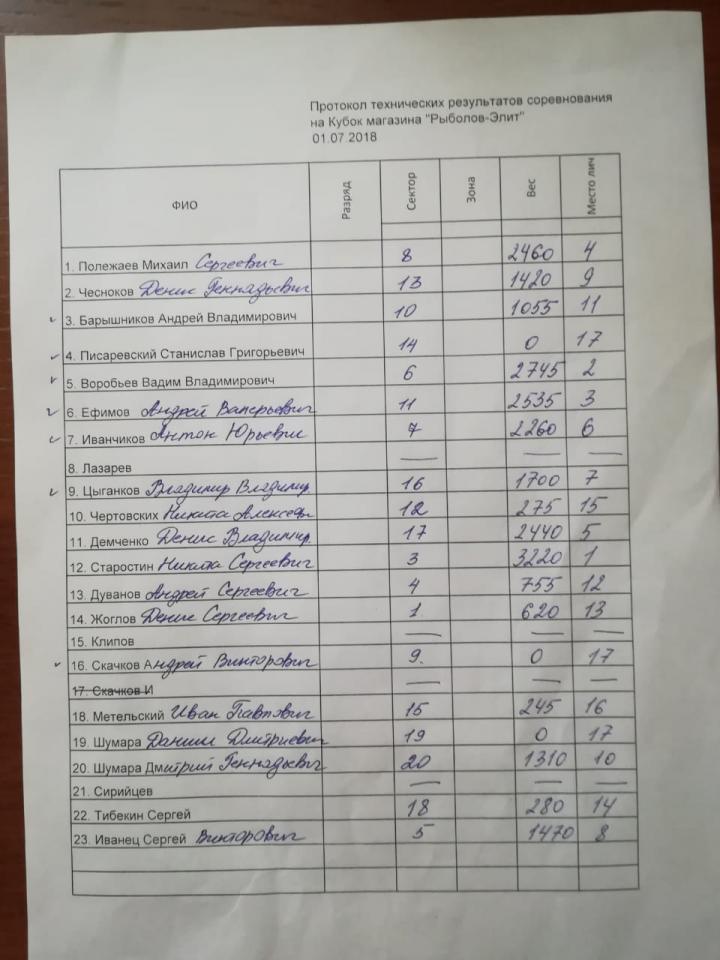 Протокол технических результатов соревнования
на Кубок магазина "Рыболов-Элит"
01.07.2018
ФИО Разряд Сектор Зона Вес Место лич
1. Полежаев Михаил Сергеевич 8 2460 4
2. Чесноков Денис Геннадьевич 13 1420 9
3. Барышников Андрей Владимирович 10 1055 11
4. Писаревский Станислав Григорьевич 14 0 17
5. Воробьев Вадим Владимирович 6 2745 2
6. Ефимов Андрей Валерьевич 11 2535 3
7. Иванчиков Антон Юрьевич 7 2260 6
8. Лазарев — — —
9. Цыганков Владимир Владимир. 16 1700 7
10. Чертовских Никита Алексеев 12 275 15
11. Демченко Денис Владимир. 17 2440 5
12. Старостин Никита Сергеевич 3 3220 1
13. Дуванов Андрей Сергеевич 4 755 12
14. Жоглов Денис Сергеевич 1 620 13
15. Клипов — — —
16. Скачков Андрей Викторович 9. 0 17
17. Скачков И — — —
18. Метельский Иван Павлович 15 245 16
19. Шумара Даниил Дмитриевич 19 0 17
20. Шумара Дмитрий Геннадьевич 20 1310 10
21. Сирийцев — — —
22. Тибекин Сергей 18 280 14
23. Иванец Сергей Викторович 5 1470 8